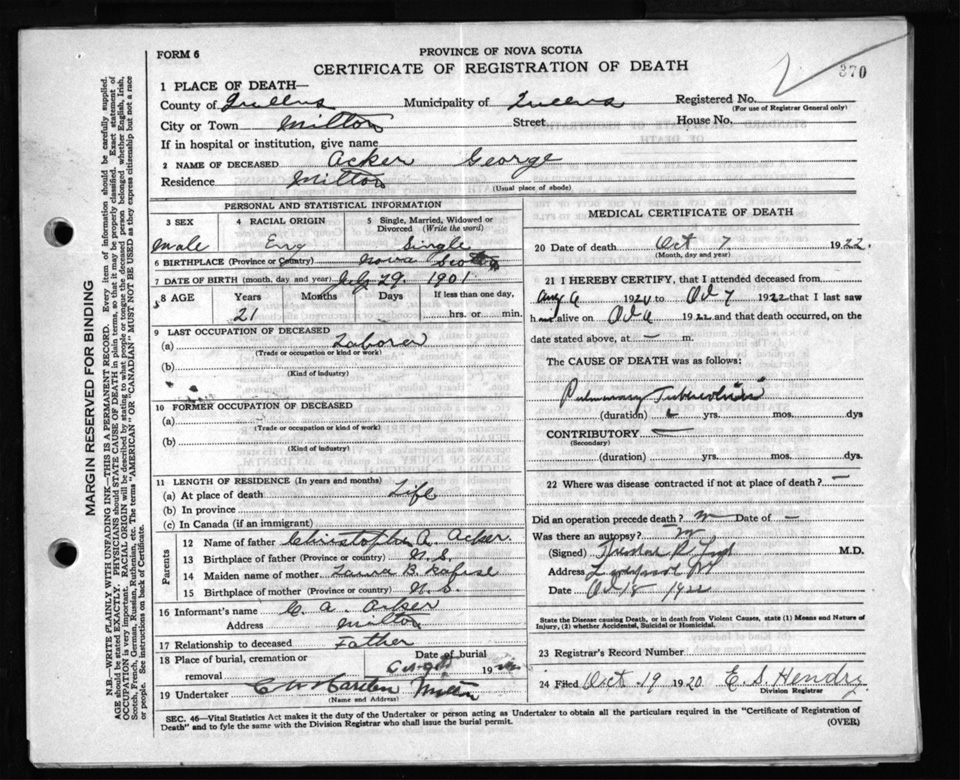 FORM 6
PROVINCE OF NOVA SCOTIA
CERTIFICATE OF REGISTRATION OF DEATH
370
1 PLACE OF DEATH—
County of Queens Municipality of Queens Registered No.
(For use of Registrar General only)
City or Town Milton Street House No.
If in hospital or institution, give name
2 NAME OF DECEASED Acker George
Residence Milton
(Usual place of abode)
PERSONAL AND STATISTICAL INFORMATION
3 SEX 4 RACIAL ORIGIN 5 Single, Married, Widowed or Divorced (Write the word)
Male Eng Single
6 BIRTHPLACE (Province or Country) Nova Scotia
7 DATE OF BIRTH (month, day and year) July 29 1901
8 AGE Years Months Days If less than one day,
21 hrs. or min.
9 LAST OCCUPATION OF DECEASED
(a) Laborer
(Trade or occupation or kind or work)
(b)
(Kind of industry)
10 FORMER OCCUPATION OF DECEASED
(a)
(Trade or occupation or kind of work)
(b)
(Kind of industry)
11 LENGTH OF RESIDENCE (In years and months)
(a) At place of death Life
(b) In province
(c) In Canada (if an immigrant)
Parents
12 Name of father Christopher A. Acker.
13 Birthplace of father (Province or country) N. S.
14 Maiden name of mother Laura B.
15 Birthplace of mother (Province or country) N. S.
16 Informant's name C. A. Acker
Address Milton
17 Relationship to deceased Father
18 Place of burial, cremation or removal Date of burial
19
19 Undertaker Milton
(Name and Address)
MEDICAL CERTIFICATE OF DEATH
20 Date of death Oct 7 1922.
(Month, day and year)
21 I HEREBY CERTIFY, that I attended deceased from
Aug 6 192 to Oct 7 1922 that I last saw
h alive on Oct 6 1922 and that death occurred, on the
date stated above, at — m.
The CAUSE OF DEATH was as follows:
Pulmonary Tuberculosis
(duration) yrs. mos. dys
CONTRIBUTORY —
(Secondary)
(duration) yrs. mos. dys.
22 Where was disease contracted if not at place of death? —
Did an operation precede death? Date of —
Was there an autopsy?
(Signed) M.D.
Address
Date Oct 8 1922
State the Disease causing Death, or in death from Violent Causes, state (1) Means and Nature of Injury, (2) whether Accidental, Suicidal or Homicidal.
23 Registrar's Record Number
24 Filed Oct 19 1920 E. S. Hendry
Division Registrar
SEC. 46—Vital Statistics Act makes it the duty of the Undertaker or person acting as Undertaker to obtain all the particulars required in the "Certificate of Registration of
Death" and to fyle the same with the Division Registrar who shall issue the burial permit.
(OVER)
MARGIN RESERVED FOR BINDING
N.B.—WRITE PLAINLY WITH UNFADING INK—THIS IS A PERMANENT RECORD. Every item of information should be carefully supplied.
AGE should be stated EXACTLY. PHYSICIANS should STATE CAUSE OF DEATH in plain terms, so that it may be properly classified. Exact statement of
OCCUPATION is very important. RACIAL ORIGIN will be described by stating to what people or tongue the deceased person belonged whether English, Irish,
Scotch, French, German, Russian, Ruthenian, etc. The terms "AMERICAN" OR "CANADIAN" MUST NOT BE USED as they express citizenship but not a race
or people. See instructions on back of Certificate.